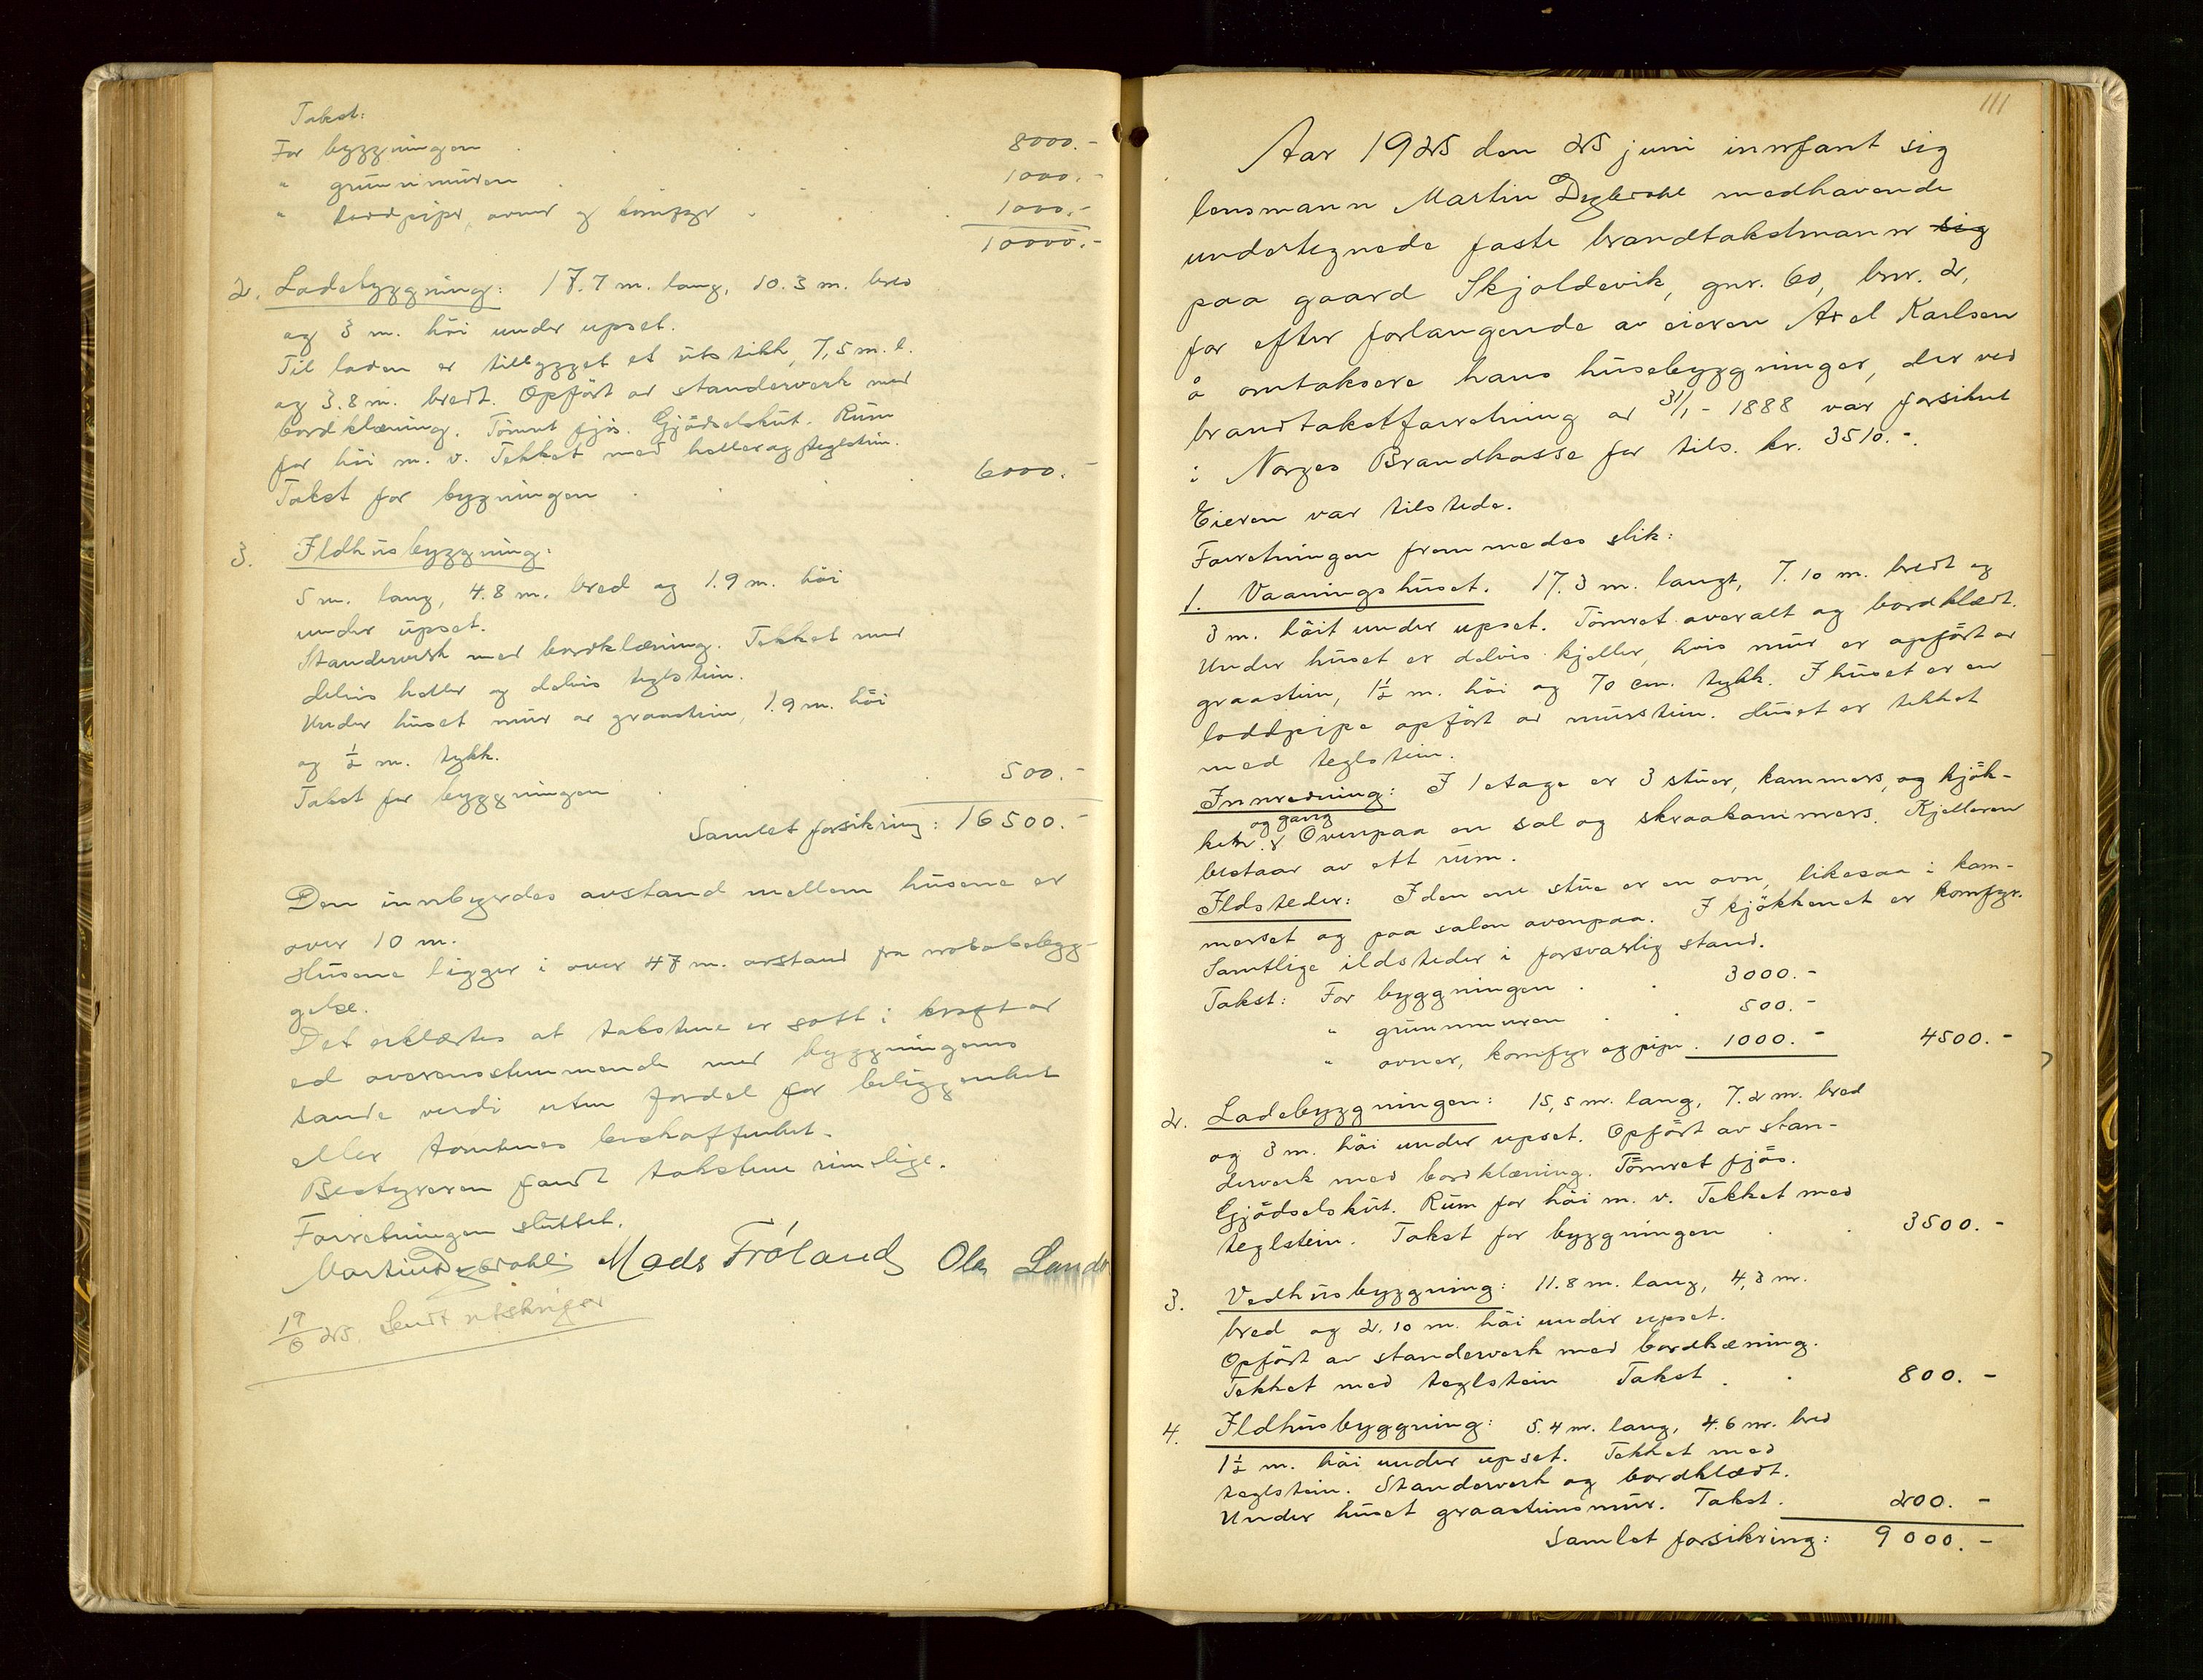 Takst:
For byggningen . . . 8000.-
" grünnmüren . 1000.-
" loddpipe, ovner og komfyr . . 1000.-
10000.-
2. Ladebyggning: 17.7 m. lang, 10.3 m. bred
og 3 m. höi under upset.
Til laden er tilbygget et utstikk, 7,5 m. l.
og 3.8 m. bredt. Opfört av standerverk med
bordklæning. Tömret fjös. Gjödselskut. Rüm
for höi m. v. Tekket med heller og teglstein.
Takst for bygningen . . . 6000.-
3. Ildhüsbyggning:
5 m. lang, 4.8 m. bred og 1.9 m. höi
under üpset.
Standerverk med bordklæning. Tekket med
delvis heller og delvis teglstein.
Under hüset mür av graastein, 1.9 m. höi
og ½ m. tykk.
Takst for byggningen . . 500.-
Samlet forsikring: 16500.-
Den innbyrdes avstand mellem hüsene er
over 10 m.
Hüsene ligger i over 47 m. avstand fra nabobebygg-
gelse.
Det erklærtes at takstene er satt i kraft av
ed overensstemmende med byggningens
sande verdi uten fordel for beliggenhet
eller tomtenes beskaffenhet.
Bestyreren fandt takstene rimelige.
Forretningen sluttet.
Martin Dybdahl Mads Fröland Ola Lande
19/6 25. Sendt utskrifter
111
Aar 1925 den 25 juni innfant sig
lensmann Martin Dybdahl medhavende
undertegnede faste brandtakstmann sig
paa gaard Skjoldevik, gnr. 60, bnr. 2,
for efter forlangende av eieren Axel Karlsen
å omtaksere hans hüsebyggninger, der ved
brandtakstforretning av 31/1 - 1888 var forsikret
i Norges Brandkasse for tils. kr. 3510.-.
Eieren var tilstede.
Forretningen fremmedes slik:
1. Vaaningshüset. 17.3 m. langt, 7.10 m. bredt og
3 m. höit under upset. Tömret overalt og bordklædt.
Under hüset er delvis kjeller, hvis mür er opfört av
graastein, 1½ m. höi og 70 cm. tykk. I hüset er en
loddpipe opfört av mürstein. Hüset er tekket
med teglstein.
Innredning: I 1 etage er 3 stüer, kammers, og kjök-
og gang
ken. Ovenpaa en sal og skraakammers. Kjelleren
bestaar av ett rüm.
Ildsteder: I den ene stüe er en ovn, likesaa i kam-
merset og paa salen ovenpaa. I kjökkenet er komfyr.
Samtlige ildsteder i forsvarlig stand.
Takst: For byggningen . . 3000.-
" grünnmuren . . 500.-
" ovner, komfyr og pipe . 1000.- 4500.-
2. Ladebyggningen: 15,5 m. lang, 7.2 m. bred
og 3 m. höi under upset. Opfört av stan-
derverk med bordklæning. Tömret fjös.
Gjödselsküt. Rüm for höi m. v. Tekket med
teglstein. Takst for byggningen . . 3500.-
3. Vedhüsbyggning: 11.8 m. lang, 4,3 m.
bred og 2.10 m. höi under upset.
Opfört av standerverk med bordklæning.
Tekket med teglstein Takst . . 800.-
4. Ildhüsbyggning: 5.4 m. lang, 4.6 m. bred
1½ m. höi under upset. Tekket med
teglstein. Standerverk og bordklædt.
Under hüset graasteinsmür. Takst. 200.-
Samlet forsikring: 9000.-